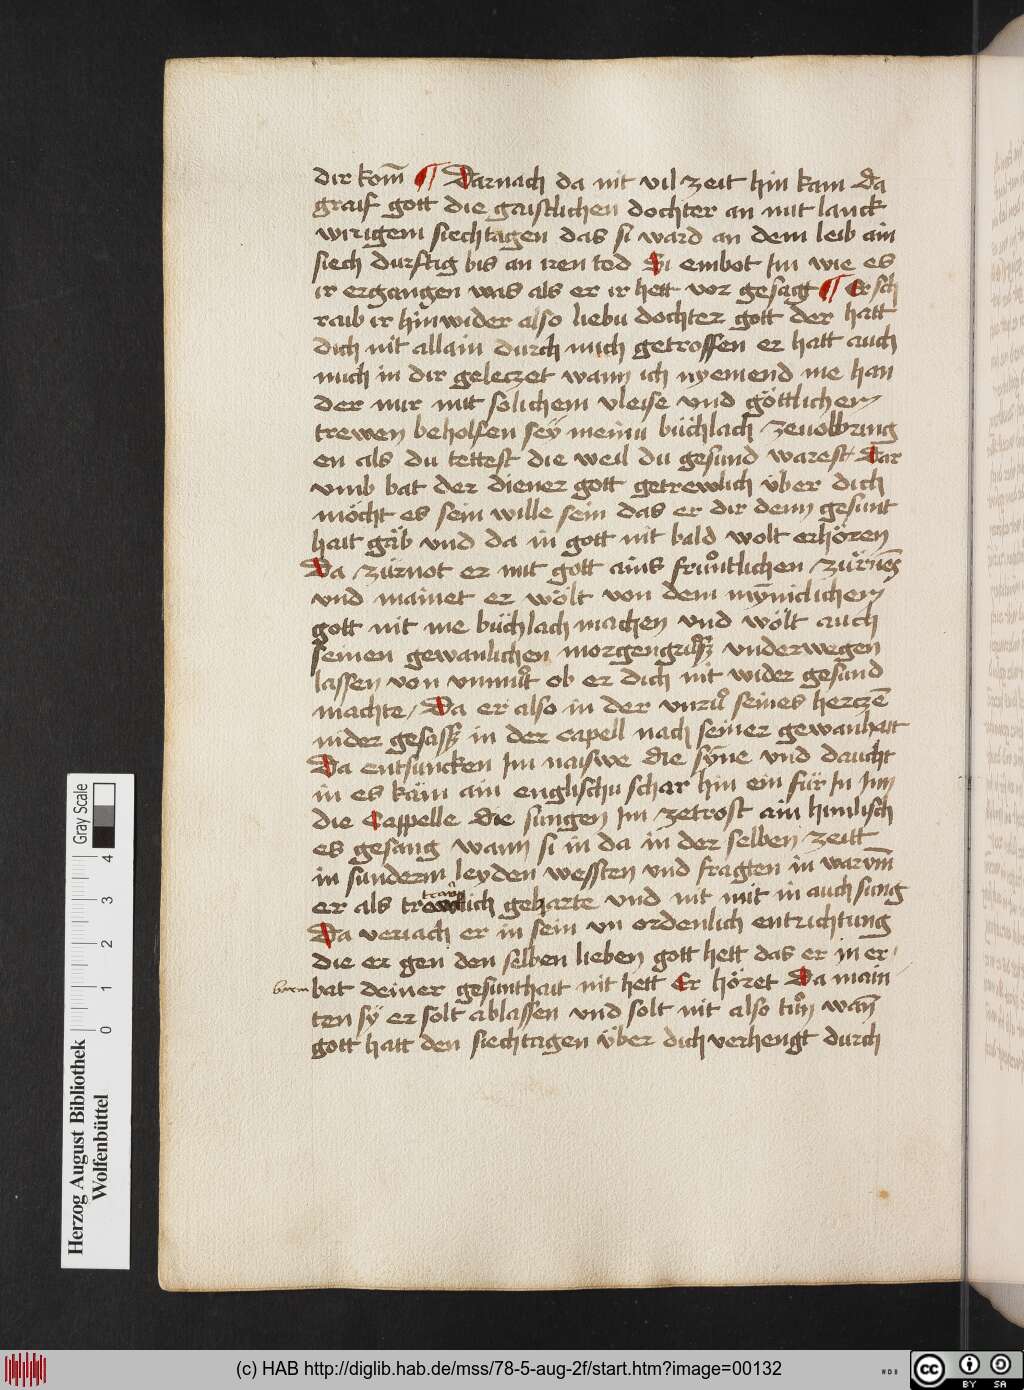 dir kom̅ ¶ Darnach da nit vil zeit hin kam Da
graif gott die gaistlichen dochter an mit lanck
wirigem siechtagen das si ward an dem leib ain
siech durftig bis an iren tod Si embot Im wie es
ir ergangen was als er ir hett vor gesagt ¶ Er sch
raib ir hin wider also liebu dochter gott der hatt
dich nit allain durch mich getroffen er hatt auch
mich in dir geleczet wann ich nyemend me han
der mir mit solichem vleise vnd göttlichen
trewen beholfen sey meinu büchlach zeuolbring
en als du tettest die weil du gesund warest Dar
vmb bat der diener gott getrewlich über dich
möcht es sein wille sein das er dir denn gesunt
hait gäb vnd da in gott nit bald wolt erhören
Da zürnot er mit gott ains fruͦntlichen zürnes
vnd mainet er wölt von dem mynniclichen
gott nit me büchlach machen vnd wölt auch
seinen gewanlichen morgengrusz vnderwegen
lassen von vnmuͦt ob er dich nit wider gesund
machte / Da er also in der vnruͦ seines herczen̅
nider gesassz in der capell nach seiner gewanhatt
Da entsuncken Im naiswe die syne vnd daucht
in es käm ain englischu schar hin ein für In Inn
die Cappelle die sungen Im zetrost ain himlisch
es gesang wann si in da in der selben zeitt
in sunderm leyden wessten vnd fragten in warum̅
er als trawrlich gebarte vnd nit mit in auch sung
Da veriach er in sein vn ordenlich entrichtung
die er gen den selben lieben gott hett das er in er
bat deiner gesunthait nit hett Er höret Da main
ten sy er solt ablassen vnd solt nit also tuͦn wan̅
gott hatt den siechtagen über dich verhengt durch
Herzog August Bibliothek
Wolfenbüttel
Gray Scale
0 1 2 3 4
(c) HAB http://diglib.hab.de/mss/78-5-aug-2f/start.htm?image=00132
WDB
cc BY SA